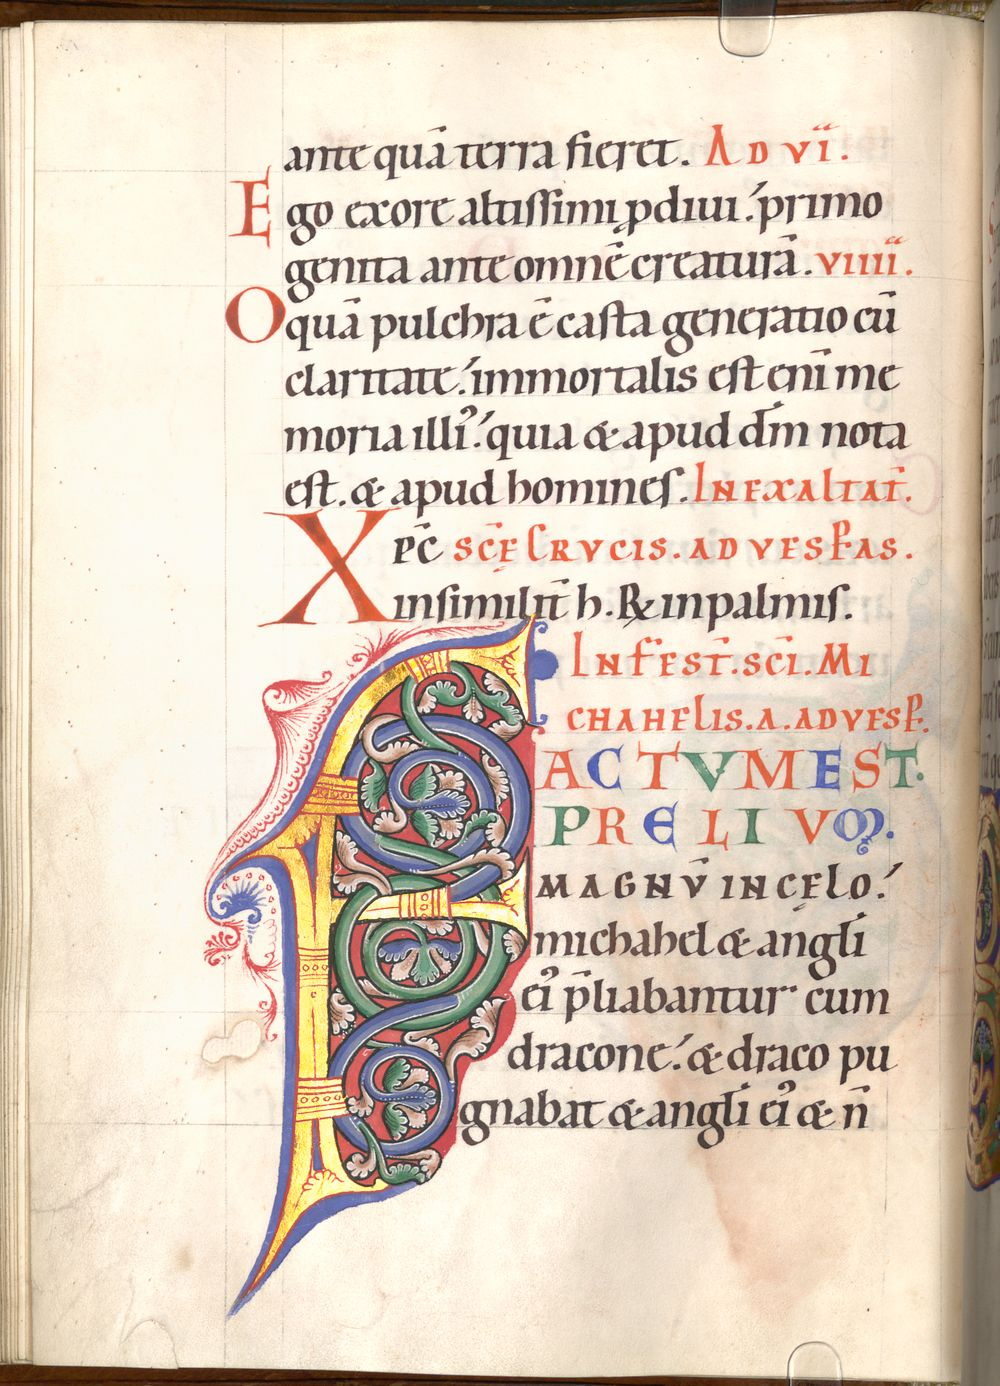 ante quā terra fieret. AD VI̅.
Ego ex ore altissimi ꝓdiui. primo
genita ante omnē creaturā. VIIII.
O quā pulchra ē casta generatio cū
claritate. immortalis est eni̅ me
moria illiꝰ. quia & apud dm̄ nota
est. & apud homines. IN EXALTAT̄.
XPC̄ SC̄E CRVCIS. AD VESP̄AS.
in similit̄ h. ℞ in palmis.
IN FEST̄. SC̄I. MI
CHAHELIS. A. AD VESP̄.
FACTVM EST.
PRELIVM.
MAGNV̄ IN CĘLO.
michahel & angli
eiꝰ p̄liabantur cum
dracone. & draco pu
gnabat & angli eiꝰ & n̄